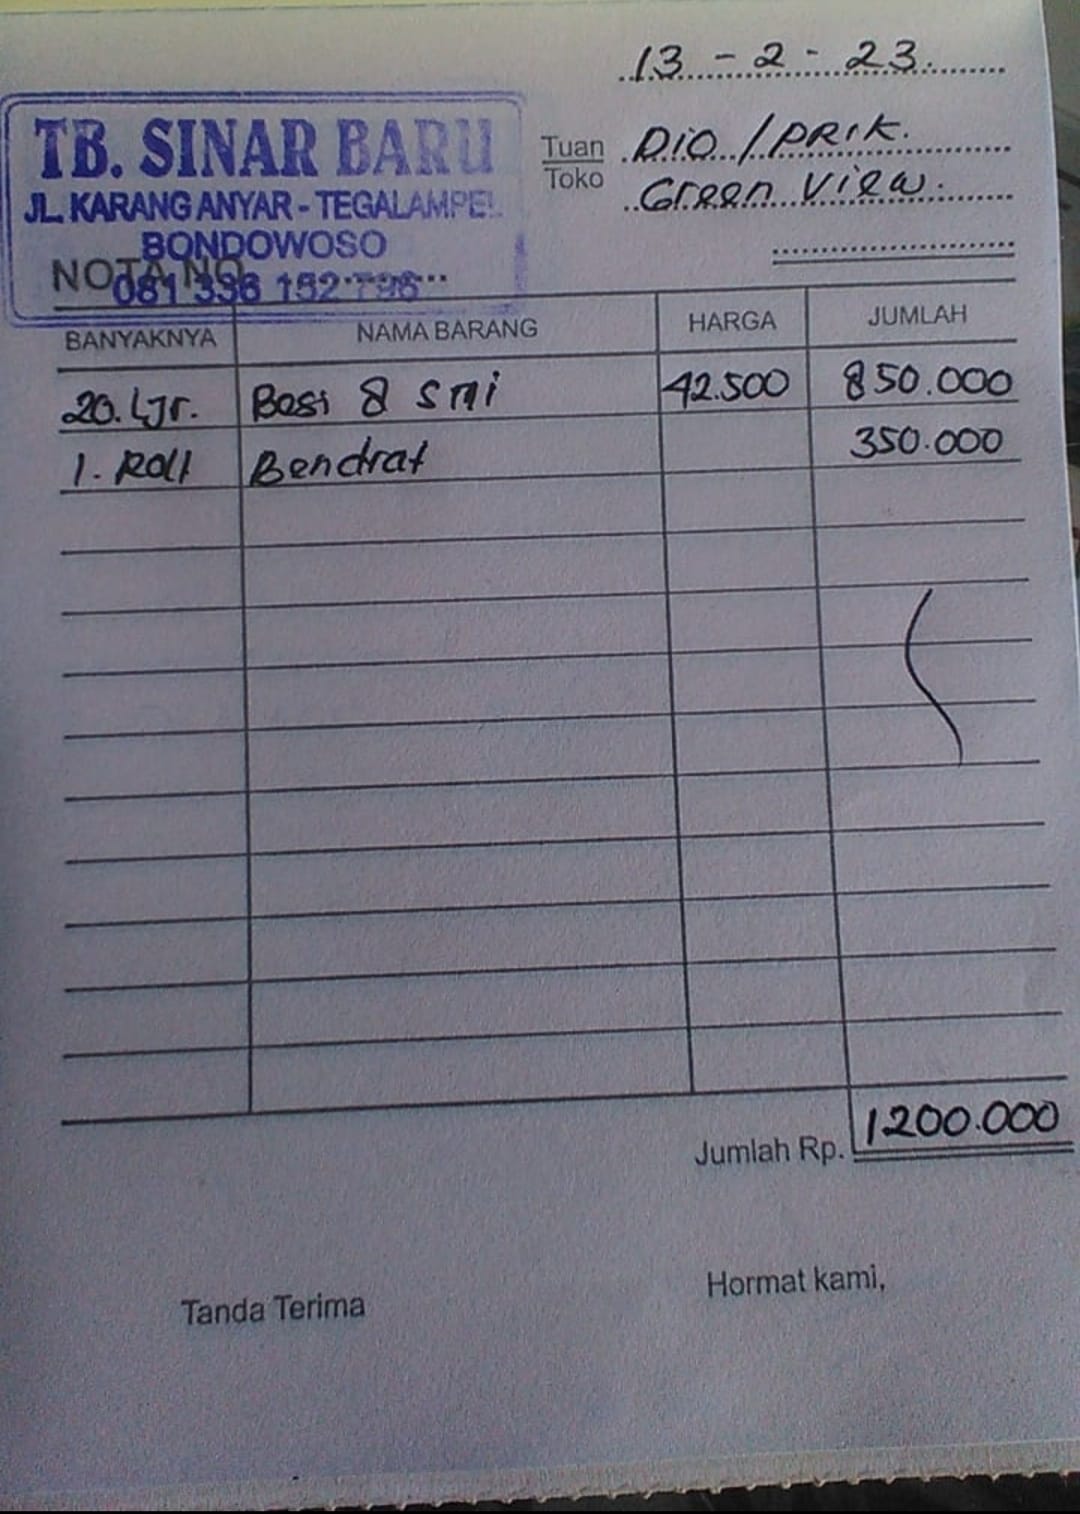 13 - 2 - 23
TB. SINAR BARU
JL. KARANG ANYAR - TEGALAMPEL
BONDOWOSO
NOTA NO.
Tuan
Toko
Dio / PRIK.
Green View.
BANYAKNYA NAMA BARANG HARGA JUMLAH
20. Ljr. Besi 8 sni 42.500 850.000
1. Roll Bendrat 350.000
Jumlah Rp. 1200.000
Tanda Terima Hormat kami,